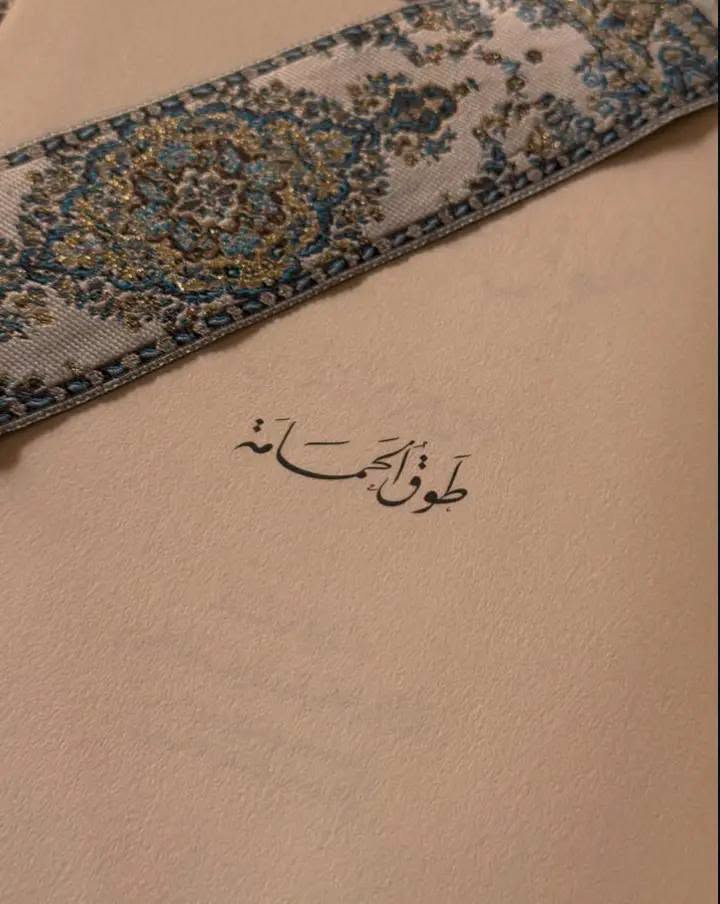 طَوقُ الحَمَامَة